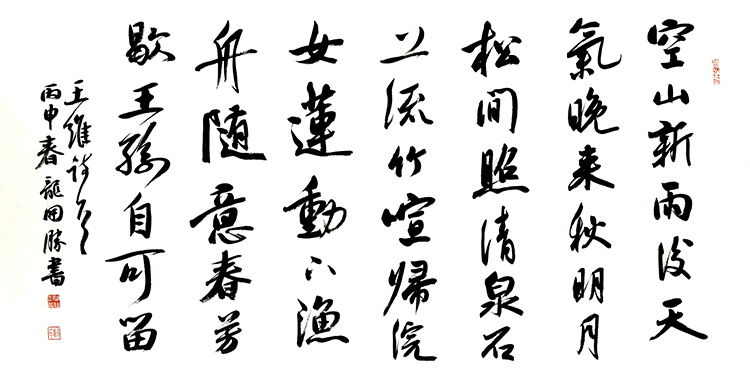 空山新雨後天
氣晚来秋明月
松間照清泉石
上流竹喧歸浣
女蓮動下漁
舟随意春芳
歇王孫自可留
王維詩
丙申春龍勝書